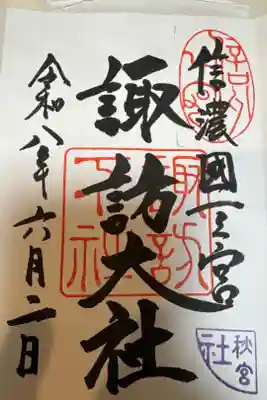 信濃國一之宮
諏訪大社
令和八年六月二日
諏訪
下社
秋宮
社